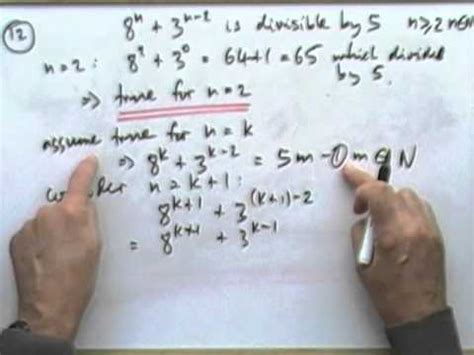 12
8ⁿ + 3ⁿ⁻² is divisible by 5 n ≥ 2 n∈N
n = 2 : 8² + 3⁰ = 64 + 1 = 65 which divided by 5.
⇒ true for n = 2
assume true for n = k
⇒ 8ᵏ + 3ᵏ⁻² = 5m - ① m ∈ N
n = k + 1 :
8ᵏ⁺¹ + 3⁽ᵏ⁺¹⁾⁻²
= 8ᵏ⁺¹ + 3ᵏ⁻¹